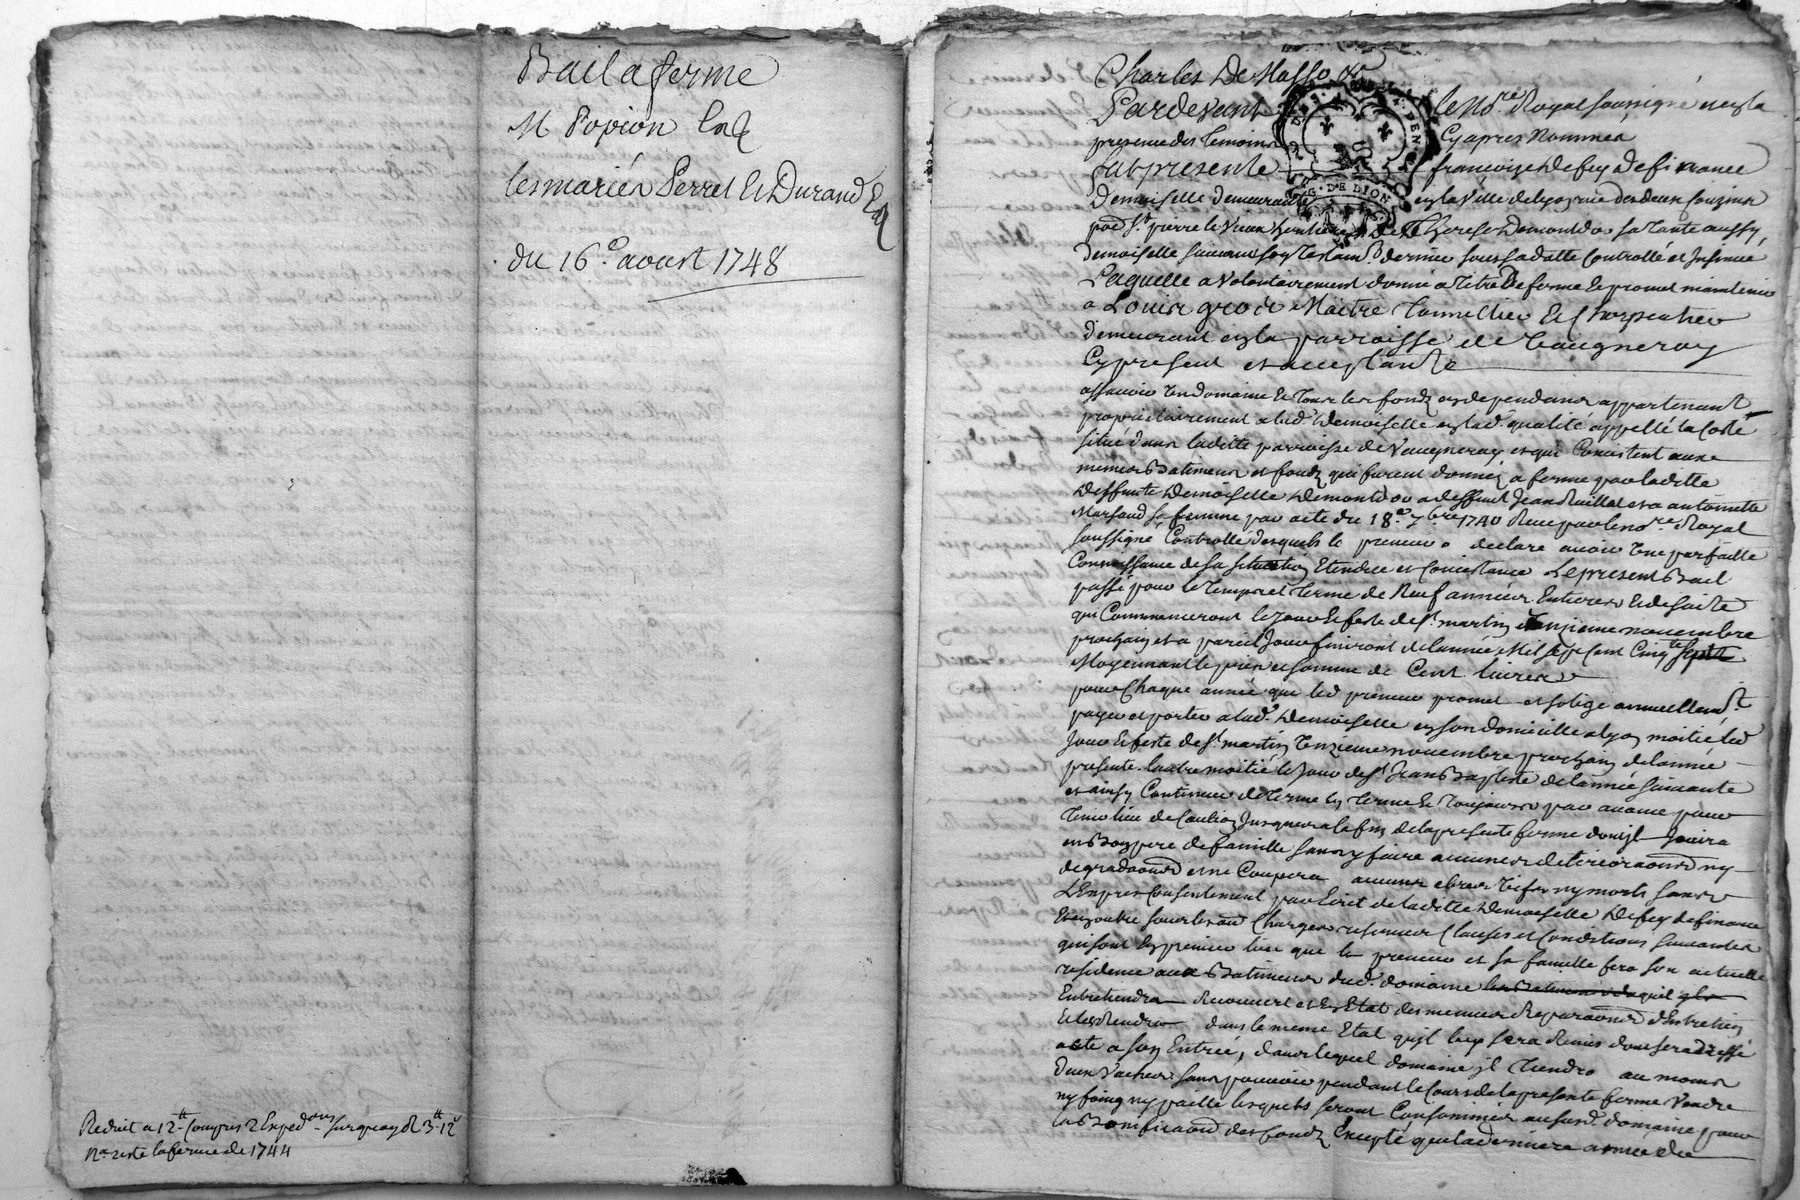 Bail a ferme
M Popion
les mariés Perret Et Durand
du 16e. aoust 1748
Reduit a 12tt Compris 2 Exped.ons surquoy R 3tt 12s
Na. reste la ferme de 1744
Charles De Masso &c
Pardevant le No.re Royal soussigné et en la
presence des temoins Cy apres Nommés
fut presente françoise Defey Definance
Demoiselle demeurante en la Ville de Lyon rue des deux Cousins
pard St. pierre le Vieux heritiere de Therese Demontdor sa tante aussy
demoiselle suivant son Testam.t dernier sous sa datte Controllé et Insinué
Laquelle a volontairement donné a titre De ferme Et promet maintenir
a Louis gros Maitre Tonnellier Et Charpentier
demeurant en la parroisse de Vaugneray
Cy present et acceptant
assavoir Un domaine Et Tous les fonds en dependans appartenant
proprietairement a lad. Demoiselle en lad. qualité appellé la Coste
situé dans laditte parroisse de Vaugneray et qui Consistent aux
memes Batimens et fonds qui furent donnés a ferme par laditte
deffunte Demoiselle Demontdor a deffunt Jean et a antoinette
sa femme par acte du 18e. 7bre 1740 Receu par le no.re Royal
soussigné Controllé desquels le preneur a declaré avoir Une parfaitte
Connoissance de sa situation Etendue et Consistance Le present Bail
passé pour le Temps et terme de Neuf années Entieres Et de suite
qui Commenceront le jour Et feste de St. martin onzieme novembre
prochain et a pareil jour finiront de l'année Mil sept Cent Cinqte sept
Moyennant le prix et somme de Cent livres
pour Chaque année que led preneur promet et soblige annuellem.t
payer et porter a lad. Demoiselle en son domicille a lyon moitié led
jour Et feste de St. martin Unzieme novembre prochain de lannée
presente lautre moitié le jour de St Jean Baptiste de l'année suivante
et ainsy Continuer de terme En terme Et Toujours par avance pour
tenir lieu de Caution jusques a la fin de la presente ferme dont jl jouira
en Bon pere de famille sans y faire aucunes deteriorations ny
degradations et ne Coupera aucuns arbres vifs ny morts sans
L'Expres Consentement par Ecrit de laditte Demoiselle Defey definance
Et en outre sous les Charges reserves Clauses et Conditions suivantes
qui sont En premier lieu que le preneur et sa famille fera son actuelle
residence aux Batimens dud. domaine
Entretiendra Recouvert et En Etat des menues Reparations d'Entretien
Et les Rendra dans le meme Etat qu'jl luy sera Remis dont sera dressé
acte a son Entrée, dans lequel domaine jl tiendra au moins
deux Vaches sans pouvoir pendant le Cours de la presente ferme Vendre
ny foing ny paille lesquels seront Consommés ausud. domaine pour
la Bonification des fonds Excepté que la derniere année du